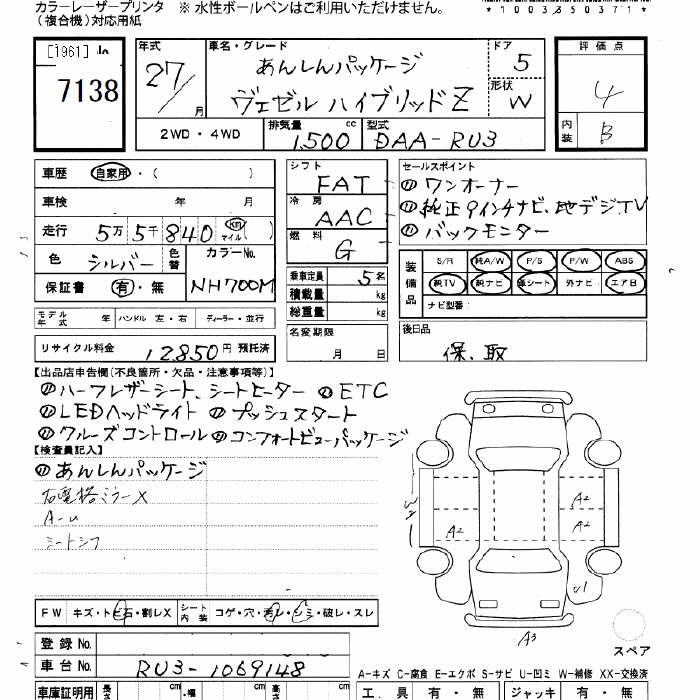 カラーレーザープリンタ ※ 水性ボールペンはご利用いただけません。
(複合機)対応用紙
*1003850371*
[1961]
7138
年式 27/ 月
車名・グレード あんしんパッケージ
ヴェゼル ハイブリッドZ
ドア 5
形状 W
評価点 4
内装 B
2WD・4WD 排気量 1,500 cc 型式 DAA-RU3
車歴 自家用・( )
車検 年 月
走行 5万 5千 840 km マイル ( )
色 シルバー 色替 カラーNo. NH700M
保証書 有・無
シフト FAT
冷房 AAC
燃料 G
乗車定員 5 名
積載量 kg
総重量 kg
セールスポイント
① ワンオーナー
① 純正9インチナビ、地デジTV
① バックモニター
装備品 S/R 純A/W P/S P/W ABS
純TV 純ナビ 革シート 外ナビ エアB
ナビ型番:
モデル年式 年 ハンドル 左・右 ディーラー・並行
名変期限 月 日
後日品 保、取
リサイクル料金 12,850 円 預託済
【出品店申告欄(不良箇所・欠品・注意事項等)】
① ハーフレザーシート、シートヒーター ① ETC
① LEDヘッドライト ① プッシュスタート
① クルーズコントロール ① コンフォートビューパッケージ
【検査員記入】
① あんしんパッケージ
ミラーX
A-u
シートシワ
A2
A2
A2
W2
U1
A3
FW キズ・トビ石・割レX シート内装 コゲ・穴・汚レ・シミ・破レ・スレ
スペア
登録 No.
車台 No. RU3-1069148
A-キズ C-腐食 E-エクボ S-サビ U-凹ミ W-補修 XX-交換済
車庫証明用 長さ cm ・幅 cm 高さ cm
工具 有・無 ジャッキ 有・無